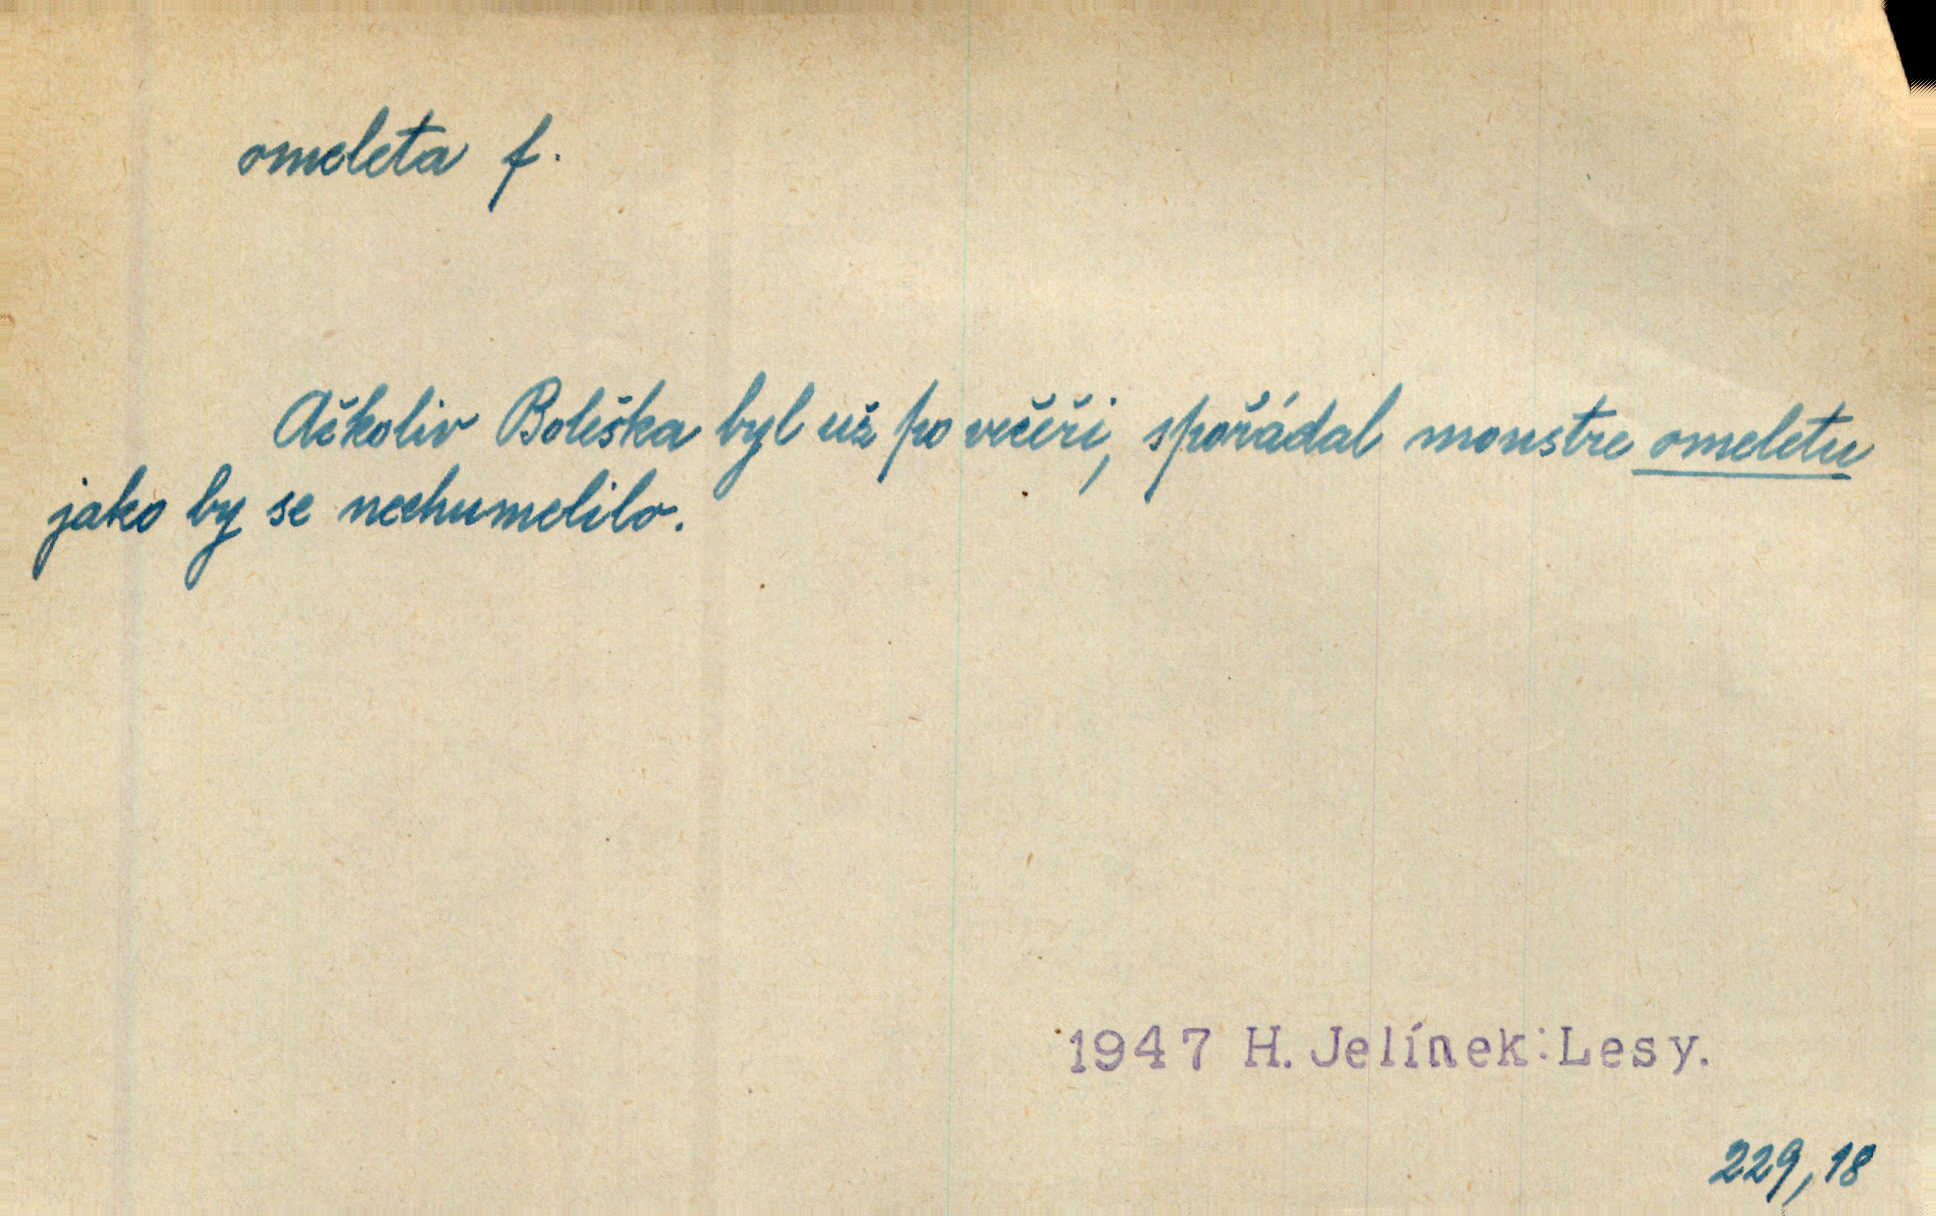 omeleta f.
Ačkoliv Boleška byl už po večeři, spořádal monstre omeletu
jako by se nechumelilo.
1947 H. Jelínek: Lesy.
229, 18